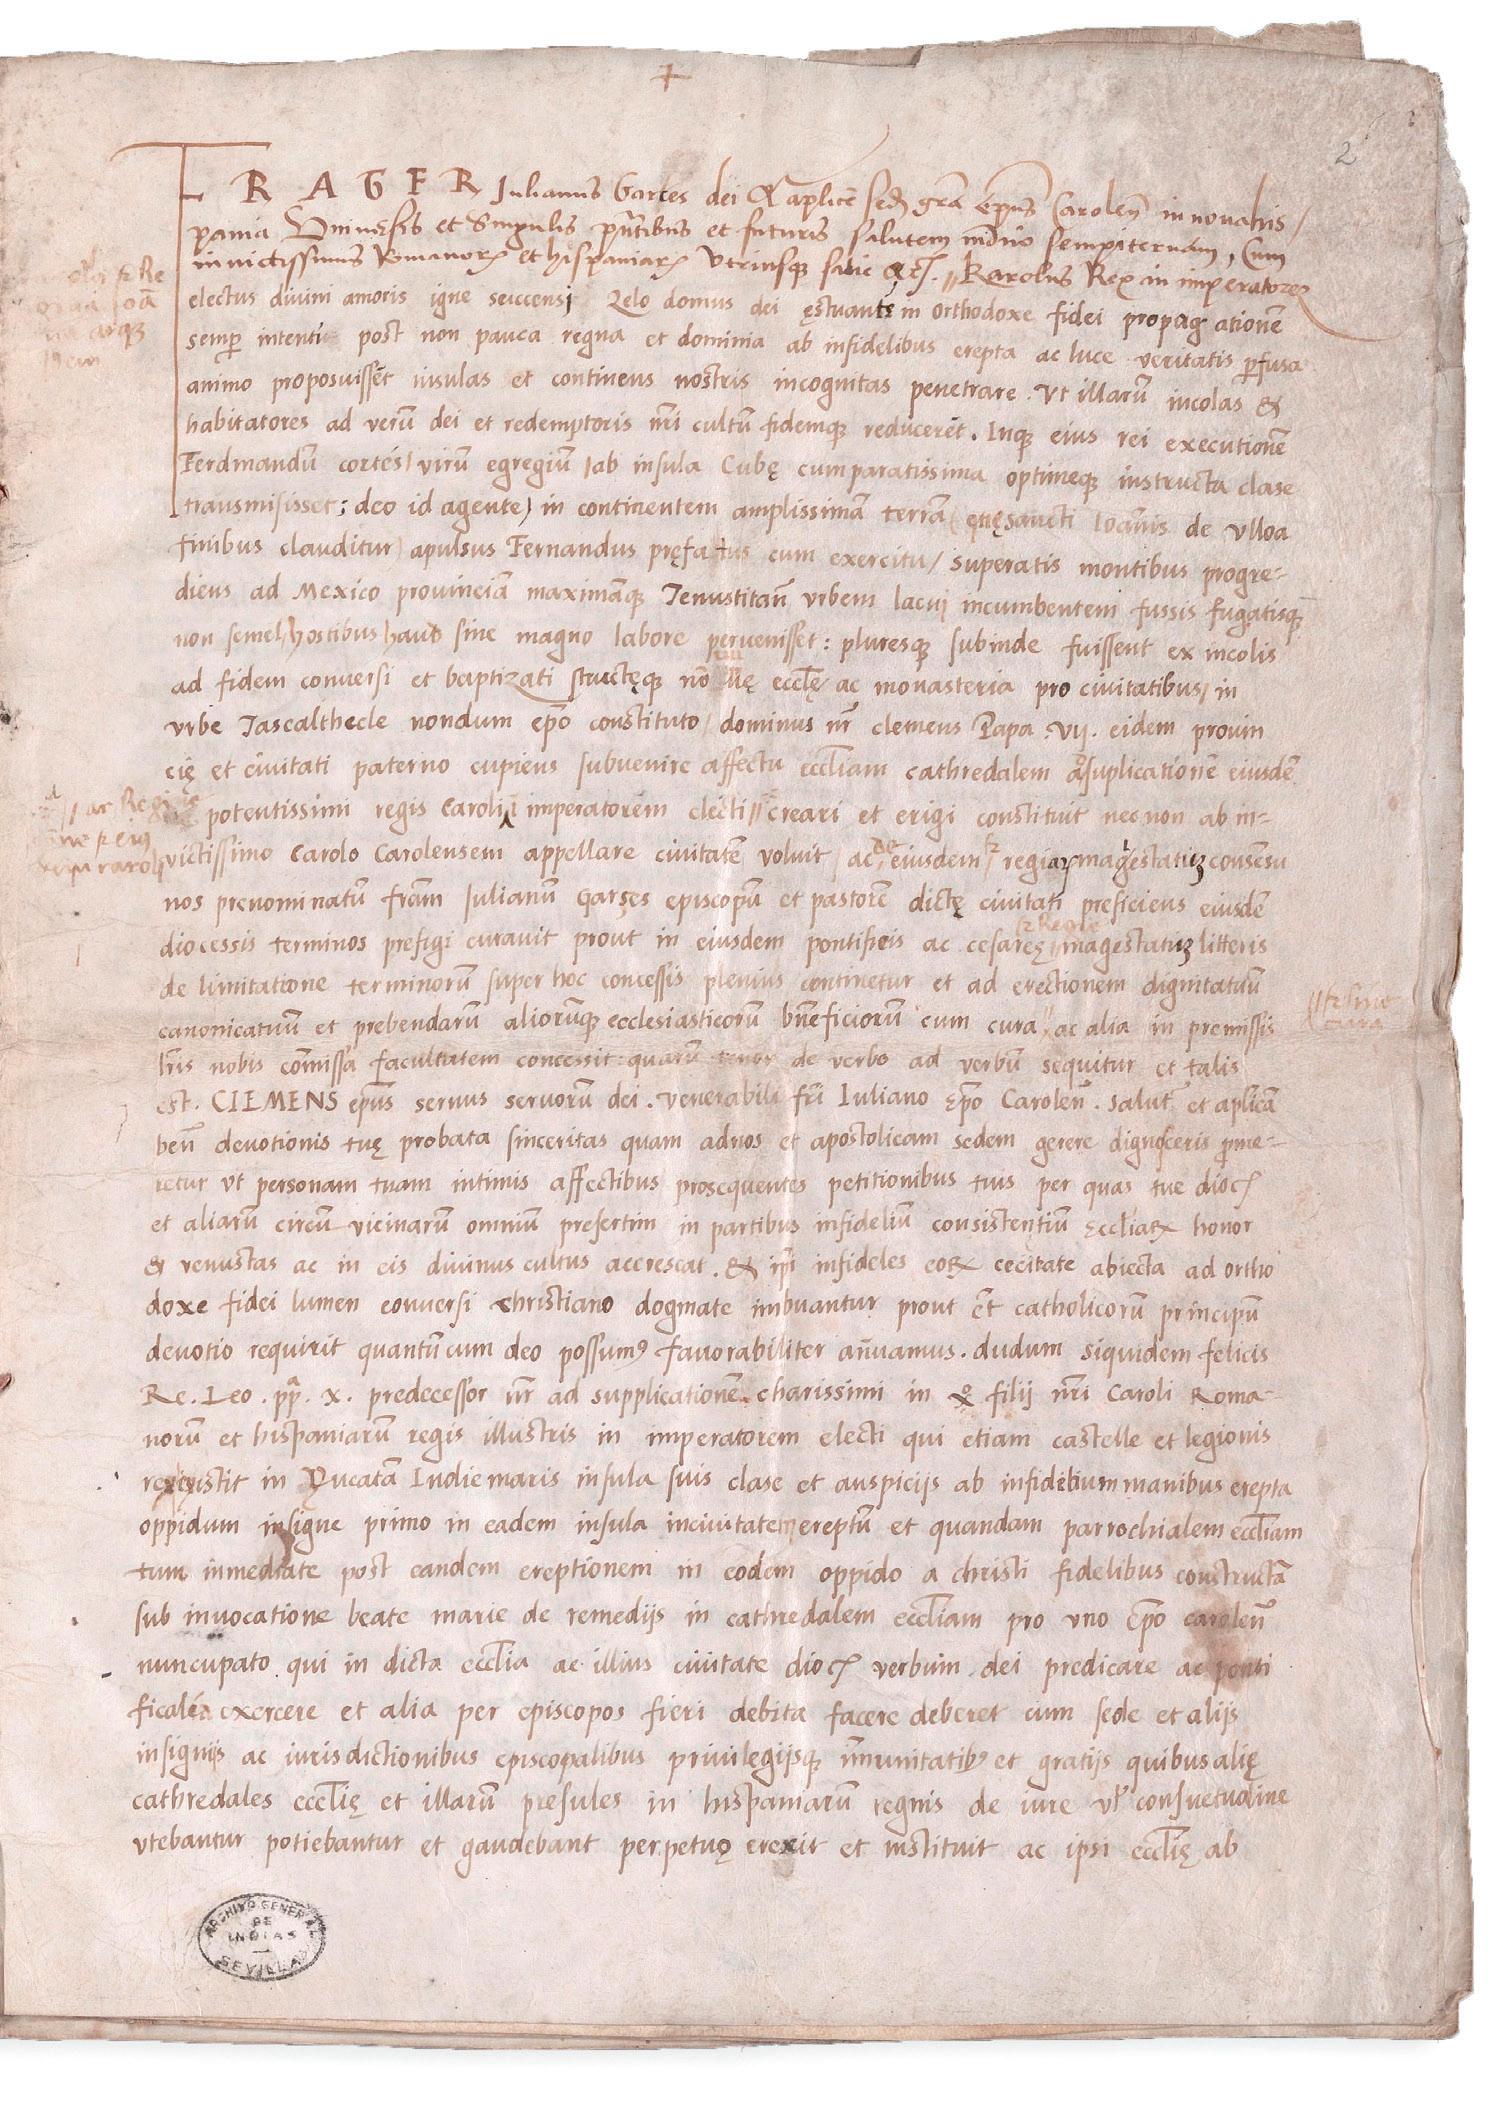 ✝
2
FRATER Iulianus Garces dei & aplice sed gra epus Carolen in novahis/
pania Universis et Singulis pntibus et futuris salutem in dno sempiternam, Cum
invictissimus Romanor et hispaniar Utriusque // Karolus Rex in imperatorem
electus divini amoris igne succensi Zelo domus dei ęstuants in Orthodoxe fidei propagationē
semp intenti post non pauca regna et dominia ab infidelibus erepta ac luce veritatis pfusa
animo proposuissēt insulas et continens nostris incognitas penetrare. Ut illarū incolas &
habitatores ad verū dei et redemptoris nri cultū fidemque reducerēt. Inque eius rei executionē
Ferdinandū cortes/ virū egregiū /ab insula Cubę cum paratissima optimeque instructa clase
transmisisset; deo id agente/ in continentem amplissimā terrā sancti Ioānis de Ulloa
finibus clauditur/ apulsus Fernandus pręfatus cum exercitu/ superatis montibus progre-
diens ad Mexico provinciā maximāque Tenustitan urbem lacui incumbentem fussis fugatisque
non semel/ hostibus/ haud sine magno labore pervenisset: pluresque subinde fuissent ex incolis
ad fidem conversi et baptizati structęque nō llę ecclię ac monasteria pro civitatibus/ in
urbe Tascalthecle nondum epo constituto/ dominus nr clemens Papa .VII. eidem provin
cię et civitati paterno cupiens subvenire affectu eccliam cathredalem suplicationē eiusdē
potentissimi regis Caroli imperatorem electi // creari et erigi constituit nec non ab in-
victissimo Carolo Carolensem appellare civitatē voluit/ ac de eiusdem regiar magestatis consensu
nos prenominatū fram Iulianum Garses episcopū et pastorē dictę civitati preficiens eiusdē
diocessis terminos prefigi curavit prout in eiusdem pontificis ac cesaręę magestatis litteris
de limitatione terminorū super hoc concessis plenius continetur et ad erectionem dignitatuū
canonicatuū et prebendarū aliorūque ecclesiasticorū bneficiorū cum cura // ac alia in premissis
lris nobis comissa facultatem concessit quarū tenor de verbo ad verbū sequitur et talis
est. CLEMENS epus servus servorū dei. venerabili fri Iuliano epo Carolen. salut et aplicā
ben devotionis tuę probata sinceritas quam ad nos et apostolicam sedem gerere dignosceris prome-
retur ut personam tuam intimis affectibus prosequentes petitionibus tuis per quas tue dioc
et aliarū circū vicinarum omniū presertim in partibus infideliū consistentiū ęccliar honor
& venustas ac in eis divinus cultus accrescat. & ipi infideles eor cecitate abiecta ad ortho
doxe fidei lumen conversi christiano dogmate imbuantur prout et catholicorū principū
devotio requirit quantū cum deo possumus favorabiliter anuamus. dudum siquidem felicis
Re. Leo. pp. X. predecessor nr ad supplicationē charissimi in xo filij nri Caroli Roma-
norū et hispaniarū regis illustris in imperatorem electi qui etiam castelle et legionis
rex existit in Yucatā Indie maris insula suis clase et auspicijs ab infidelium manibus erepta
oppidum insigne primo in eadem insula in civitatem ereptū et quandam parrochialem eccliam
tum inmediate post eandem ereptionem in eodem oppido a christi fidelibus constructā
sub invocatione beate marie de remedijs in cathredalem eccliam pro uno epo carolen
nuncupato qui in dicta ecclia ac illius civitate dioc verbum dei predicare ac ponti
ficalia exercere et alia per episcopos fieri debita facere deberet cum sede et alijs
insignijs ac iurisdictionibus episcopalibus privilegijsque inmunitatibus et gratijs quibus alię
cathredales ecclię et illarū presules in hispaniarū regnis de iure vl consuetudine
utebantur potiebantur et gaudebant perpetuo erexit et instituit ac ipsi ecclię ab
// et sine
cura
ARCHIVO GENERAL
DE
INDIAS
SEVILLA